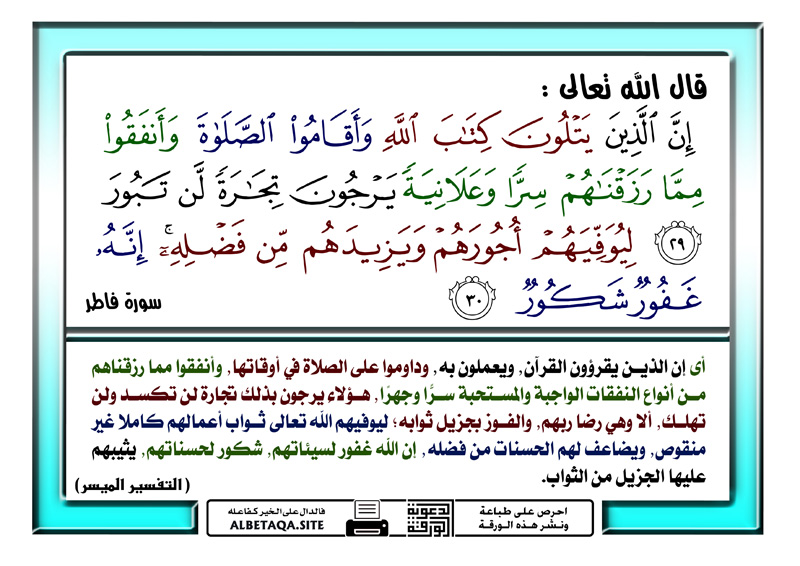 قال الله تعالى :
إِنَّ ٱلَّذِينَ يَتْلُونَ كِتَٰبَ ٱللَّهِ وَأَقَامُوا۟ ٱلصَّلَوٰةَ وَأَنفَقُوا۟
مِمَّا رَزَقْنَٰهُمْ سِرًّا وَعَلَانِيَةً يَرْجُونَ تِجَٰرَةً لَّن تَبُورَ
٢٩ لِيُوَفِّيَهُمْ أُجُورَهُمْ وَيَزِيدَهُم مِّن فَضْلِهِۦٓ ۚ إِنَّهُۥ
غَفُورٌ شَكُورٌ ٣٠ سورة فاطر
أى إن الذيـن يقرؤون القرآن, ويعملون به, وداوموا على الصلاة في أوقاتها, وأنفقوا مما رزقناهم
مـن أنواع النفقات الواجبة والمستحبة سـرًّا وجهرًا, هـؤلاء يرجون بذلك تجارة لن تكسـد ولن
تهلـك, ألا وهي رضا ربهم, والفـوز بجزيل ثوابه؛ ليوفيهم الله تعالى ثـواب أعمالهم كاملا غير
منقوص, ويضاعف لهم الحسنات من فضله, إن الله غفور لسيئاتهم, شكور لحسناتهم, يثيبهم
عليها الجزيل من الثواب.
( التفسير الميسر )
احرص على طباعة
ونشر هذه الورقة
الدعوية
الورقة
فالدال على الخير كفاعله
ALBETAQA.SITE